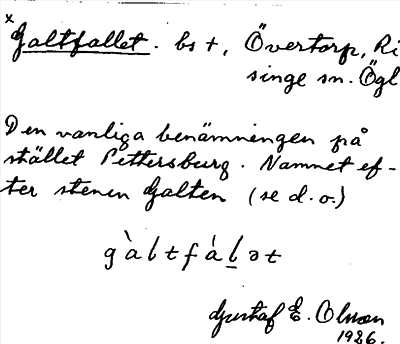 x
Galtfallet. bs +, Övertorp, Ri
singe sn. Ögl
Den vanliga benämningen på
stället Pettersburg. Namnet ef-
ter stenen Galten (se d. o.)
gàltfálət
Gustaf E. Olsson
1926.